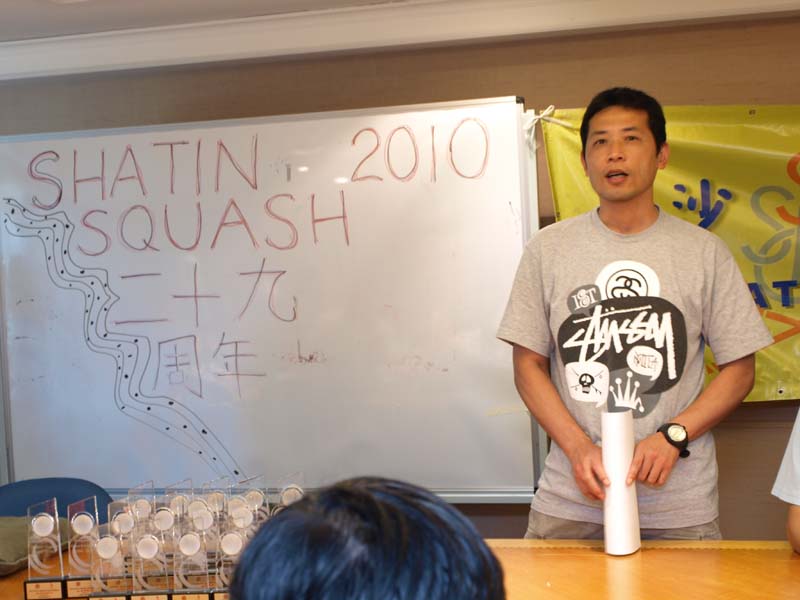 SHATIN 2010
SQUASH
二十九
周年
沙
AT
IST
STÜSSY